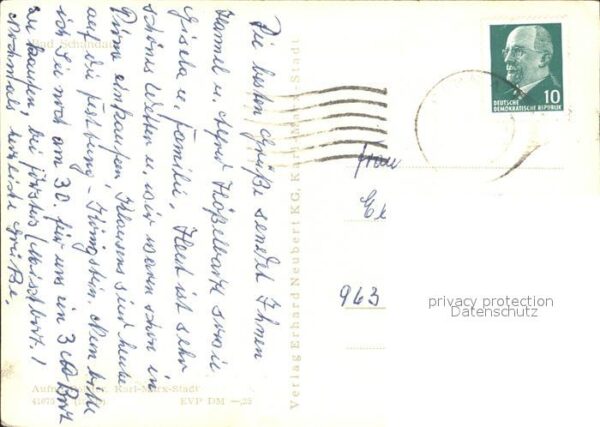 Bad Schandau
Die besten Grüße sendet Ihnen
Hannel u. Alfred
Gisela u. Familie. Heut ist sehr
schönes Wetter u. wir waren schon in
Pirna einkaufen. Klausens sind heute
auf die Festung-Königstein. Nun bitte
ich Sie noch am 30. für uns ein 3 Brot
zu kaufen, bei
Nochmals herzliche Grüße.
Aufn. Karl-Marx-Stadt
EVP DM -,25
Verlag Erhard Neubert KG, Karl-Marx-Stadt
DEUTSCHE
DEMOKRATISCHE REPUBLIK
10
Frau
963
privacy protection
Datenschutz